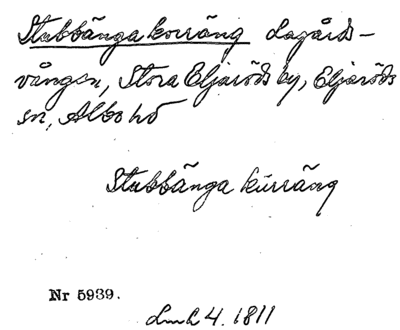 Stubbänga korräng Lagårds-
vången, Stora Eljaröds by, Eljaröds
sn, Albo hd
Stubbänga kúrräng
Nr 5939.
LmA 4. 1811